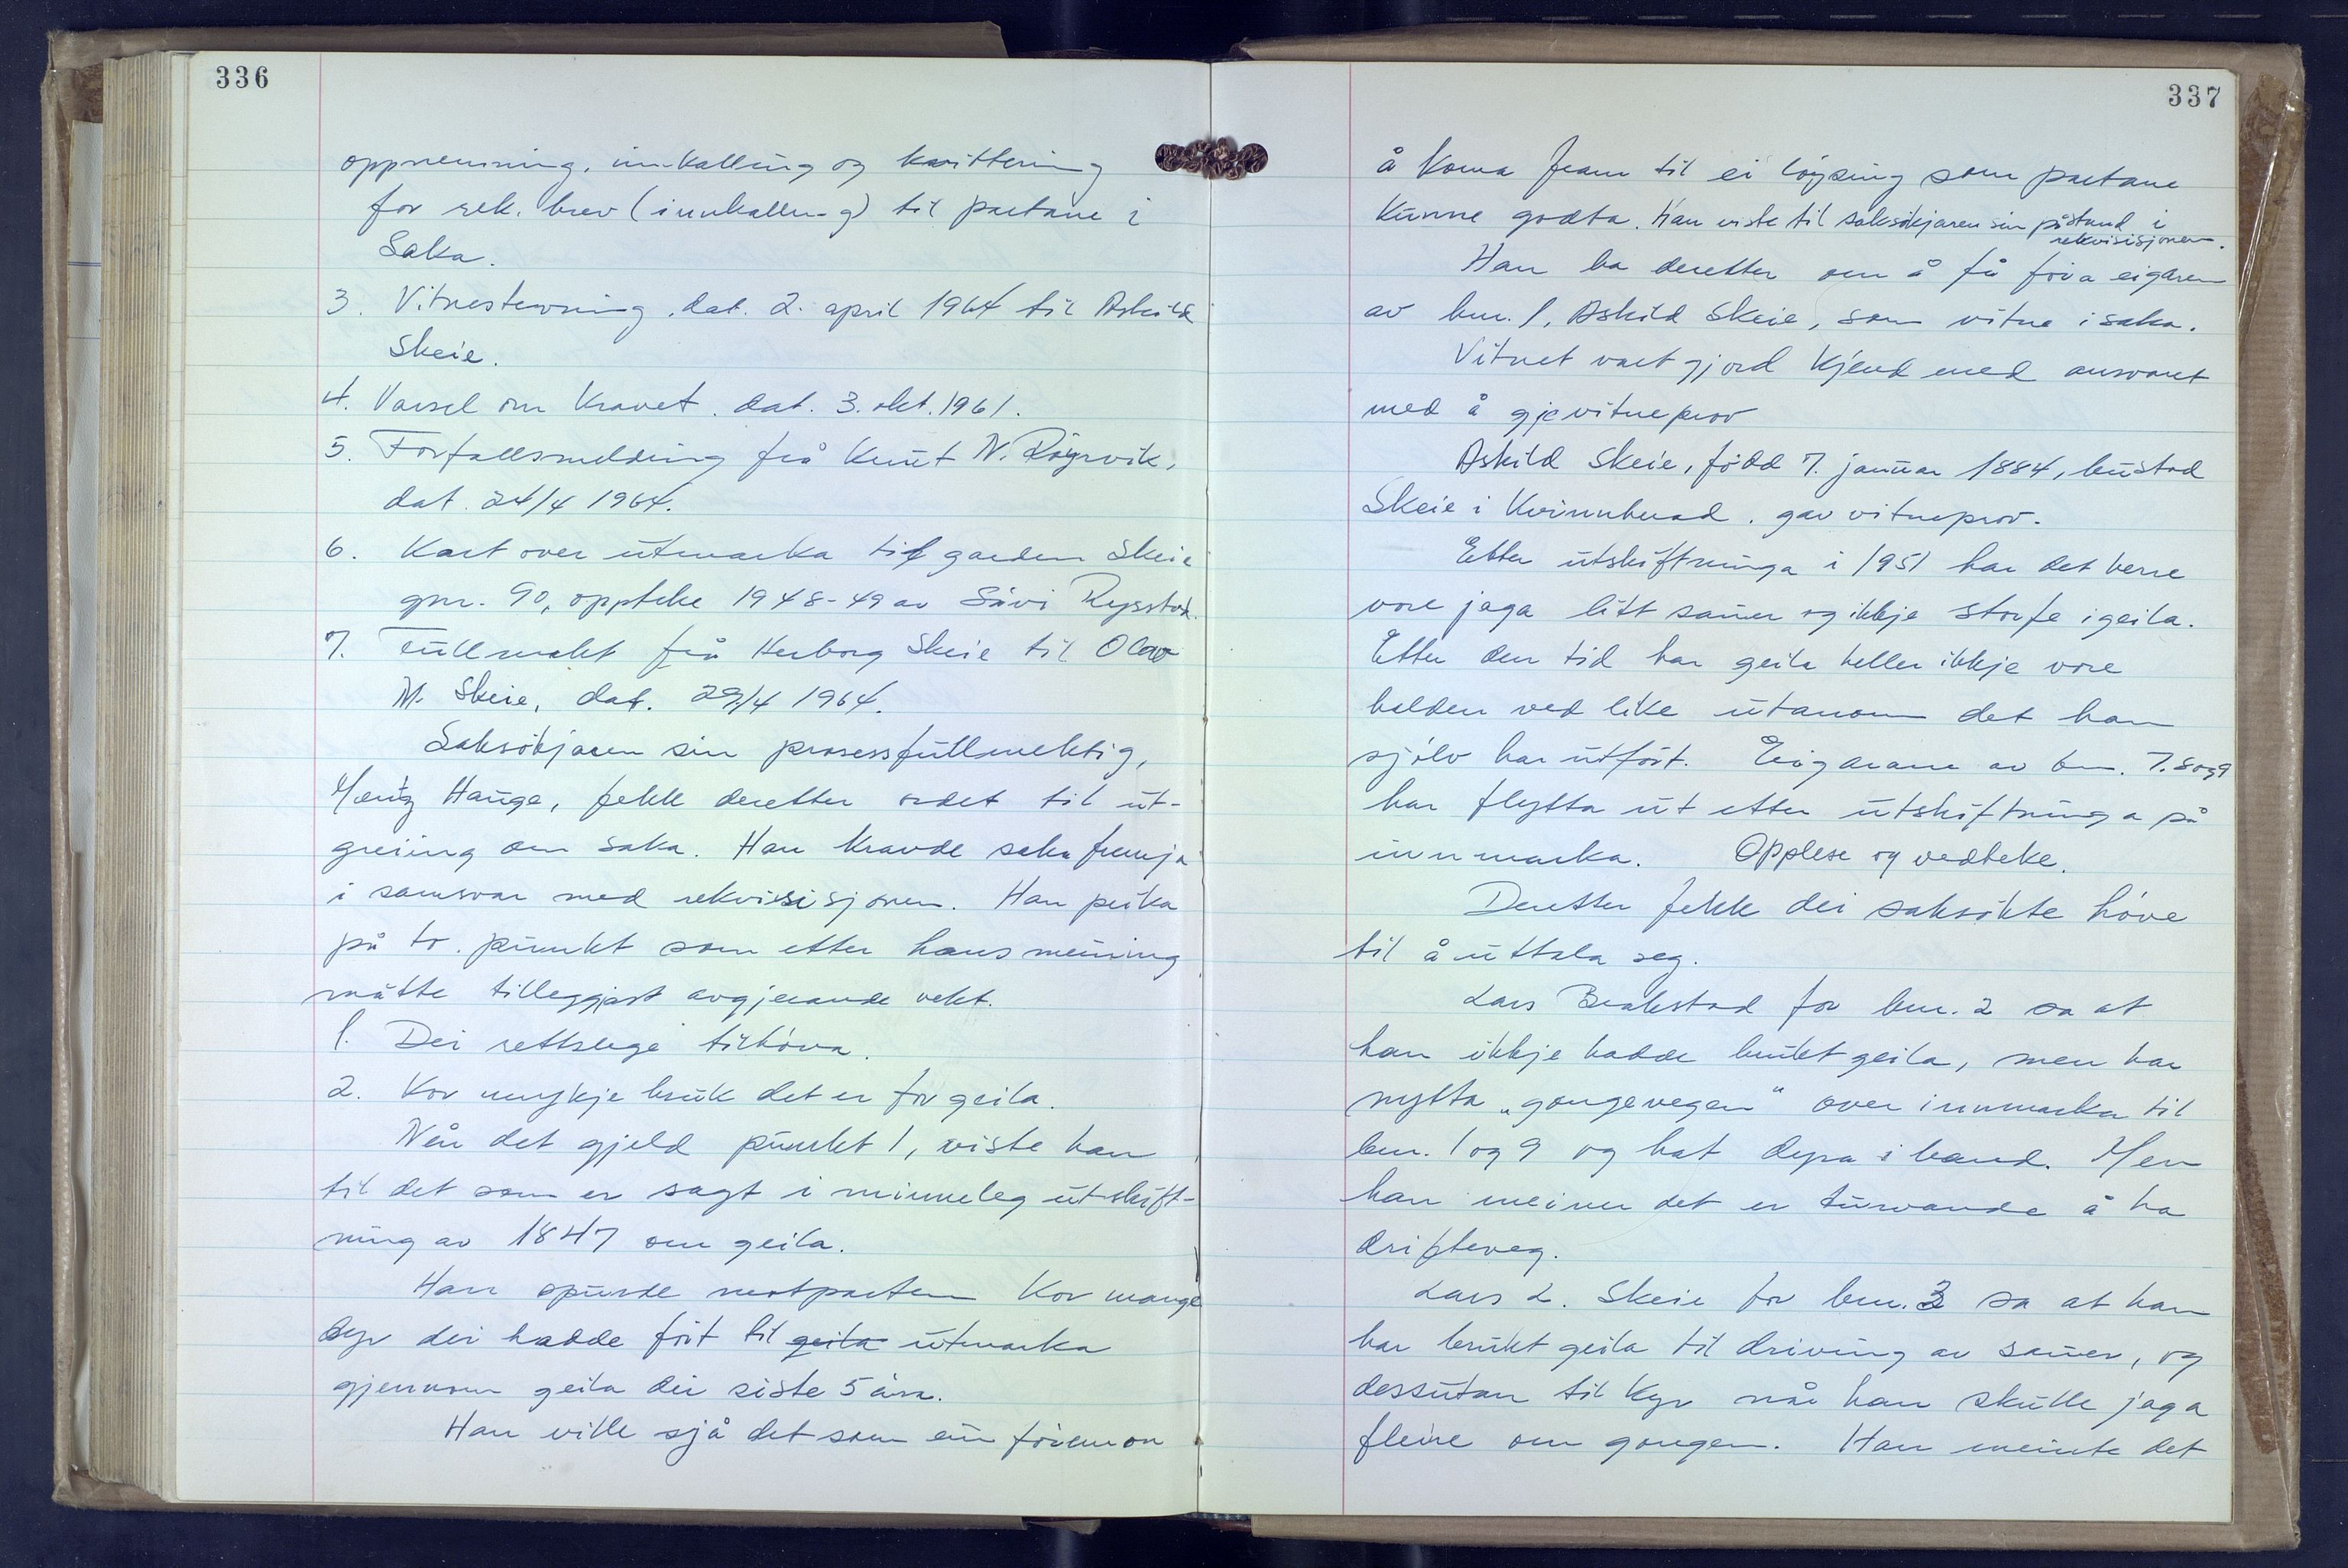 336
oppnemning, innkalling og kvittering
for rek. brev (innkalling) til partane i
Saka.
3. Vitnestevning, dat. 2. april 1964 til Askild
Skeie.
4. Varsel om Kravet. dat. 3. okt. 1961.
5. Forfallsmelding frå Knut N. Röyrvik,
dat. 24/4 1964.
6. Kart over utmarka til garden Skeie
gnr. 90, oppteke 1948-49 av Rysstad.
7. Fullmakt frå Herborg Skeie til Olav
M. Skeie, dat. 29/4 1964.
Saksökjaren sin prosessfullmektig,
Hauge, fekk deretter ordet til ut-
greiing om saka. Han kravde saka fremja
i samsvar med rekvisisjonen. Han peika
på to punkt som etter hans meining
måtte tilleggjast avgjerande vekt.
1. Dei rettslege tilhöva.
2. Kor mykje bruk det er for geila.
Når det gjeld punkt 1, viste han
til det som er sagt i minneleg utskift-
ning av 1847 om geila.
Han spurde motparten Kor mange
dyr dei hadde fört til geila utmarka
gjennom geila dei siste 5 åra.
Han ville sjå det som ein föremon
337
å koma fram til ei löysing som partane
kunne godta. Han viste til saksökjaren sin påstand i
rekvisisjonen.
Han ba deretter om å få före eigaren
av bnr. 1, Askild Skeie, som vitne i saka.
Vitnet vart gjord kjend med ansvaret
med å gje vitneprov
Askild Skeie, född 7. januar 1884, bustad
Skeie i Kvinnherad, gav vitneprov.
Etter utskiftninga i 1951 har det berre
vore jaga litt sauer og ikkje storfe i geila.
Etter den tid har geila heller ikkje vore
halden ved like utanom det han
sjölv har utfört. Eigarane av bnr. 7. 8 og 9
har flytta ut etter utskiftninga på
innmarka. Opplese og vedteke.
Deretter fekk dei saksökte höve
til å uttala seg.
Lars Brakstad for bnr. 2 sa at
han ikkje hadde brukt geila, men har
nytta „gongevegen" over innmarka til
bnr. 1 og 9 og hat dyra i band. Men
han meiner det er turvande å ha
drifteveg.
Lars L. Skeie for bnr. 3 sa at han
har brukt geila til driving av sauer, og
dessutan til kyr når han skulle jaga
fleire om gongen. Han meinte det